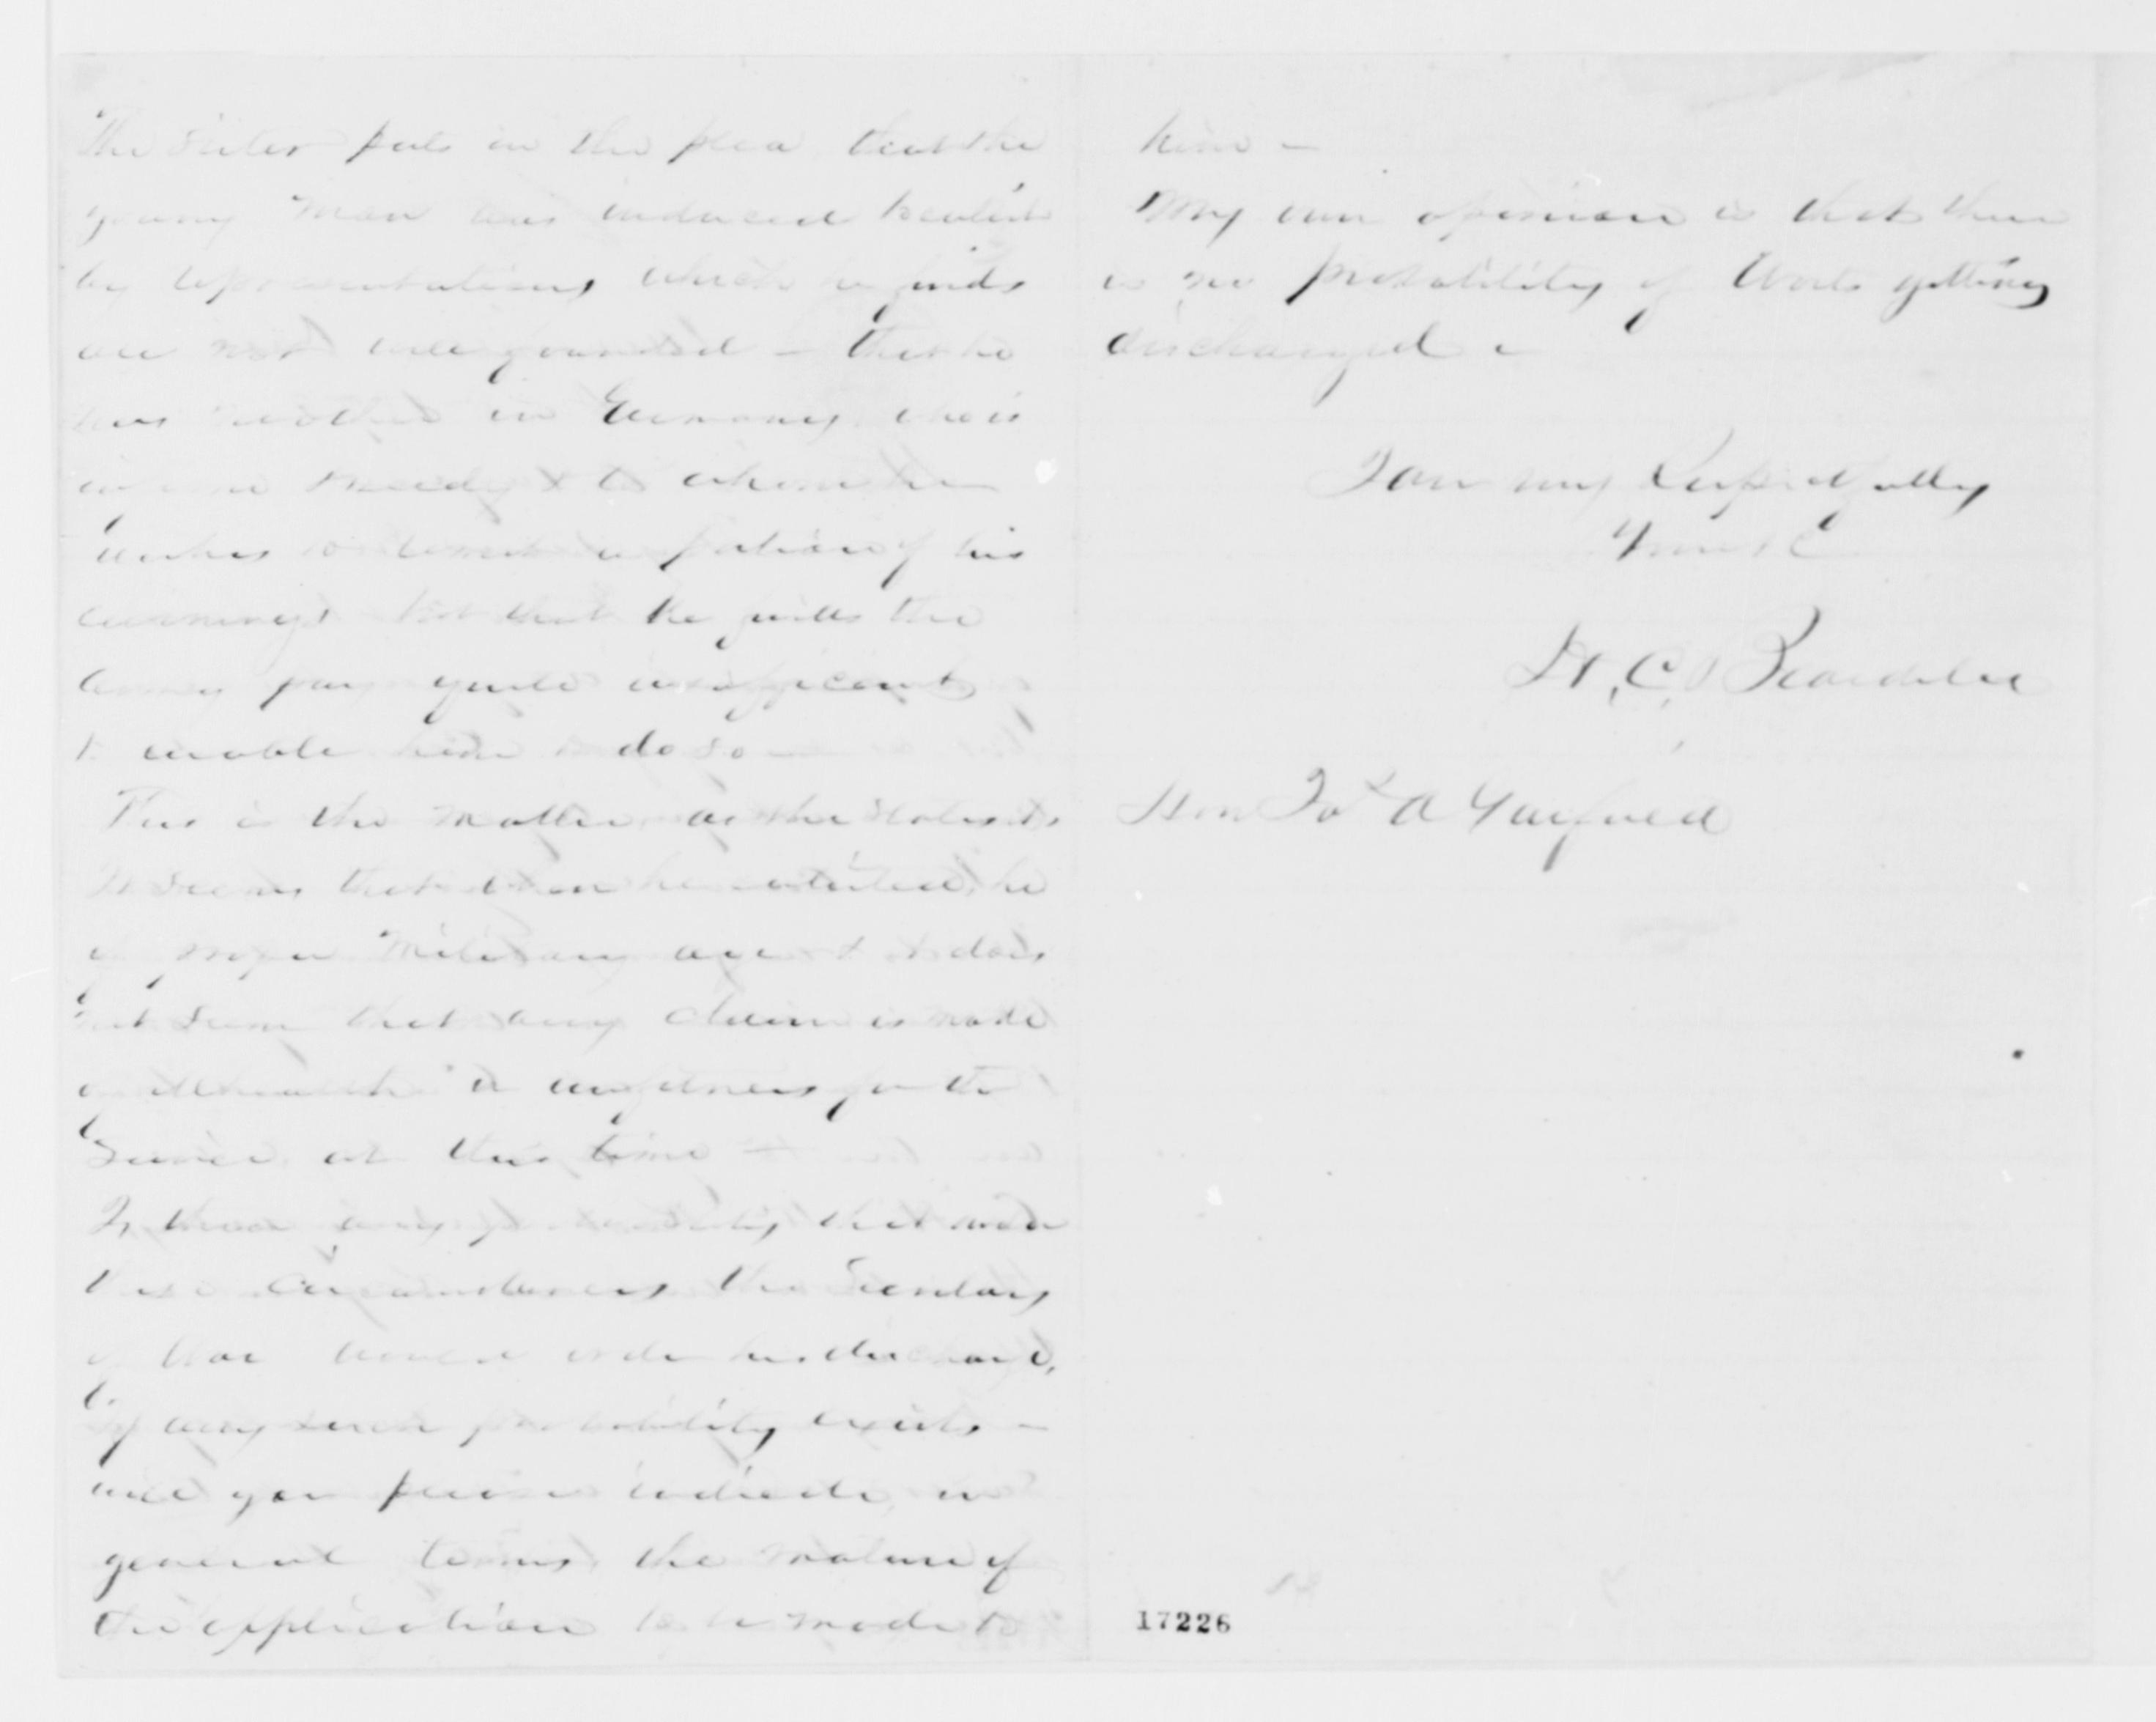 The sister puts in the plea that the
young man was induced to enlist
by representations which he finds
are not well grounded – that he
has mother in Germany who is
needy & to whom he
wishes to remit a portion of his
earnings but that he finds the
army pay quite insufficient
to enable him to do so –
This is the matter as she states it,
It seems that when he enlisted, he
of proper Military age & it does
not seem that any claim is made
of unfitness for the
Service at this time
Is there any probability that under
these circumstances the Secretary
of War would order his discharge,
If any such probability exists –
will you please indicate, in
general terms, the nature of
the application to be made to
him –
My own opinion is that there
is no probability of getting
discharged –
I am very Respectfully
Yours &c
H. C. Beardslee
Hon Jas A Garfield
17226